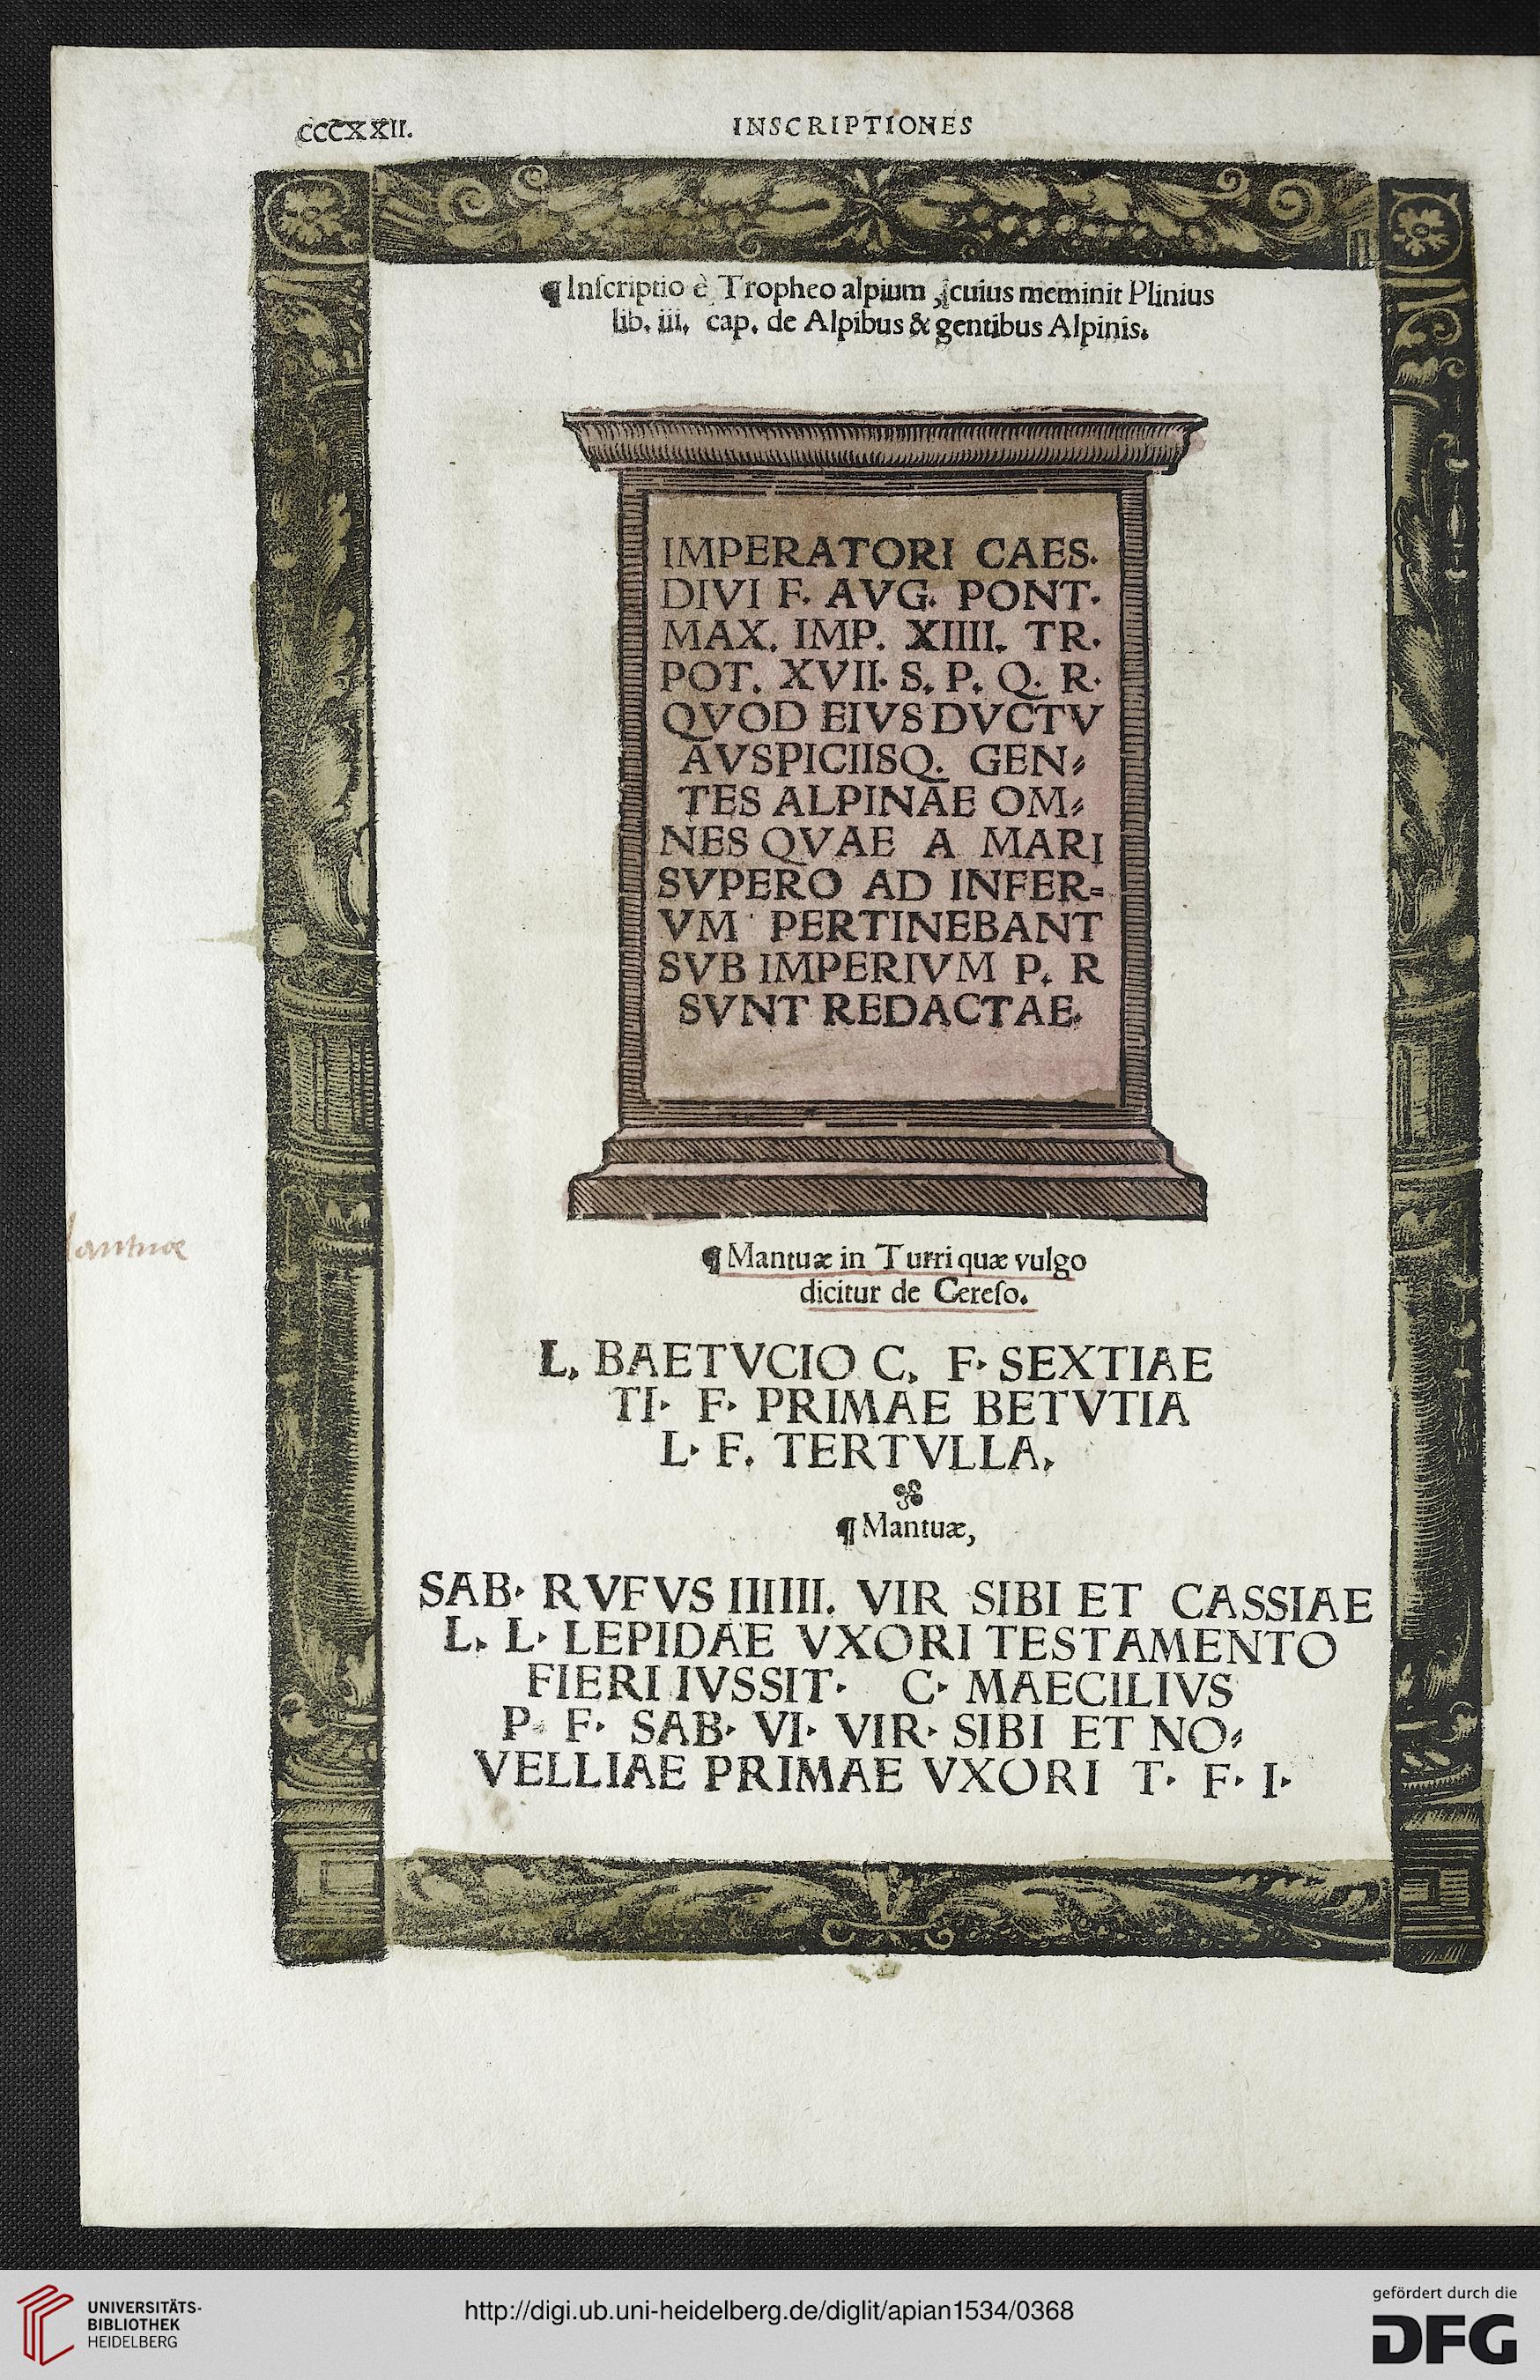 CCCXXII.
INSCRIPTIONES
¶ Inſcriptio è Tropheo alpium, cuius meminit Plinius
lib. iii. cap. de Alpibus & gentibus Alpinis.
IMPERATORI CAES.
DIVI F. AVG. PONT.
MAX. IMP. XIIII. TR.
POT. XVII. S. P. Q. R.
QVOD EIVS DVCTV
AVSPICIISQ. GEN⸗
TES ALPINAE OM⸗
NES QVAE A MARI
SVPERO AD INFER=
VM PERTINEBANT
SVB IMPERIVM P. R
SVNT REDACTAE.
antuæ
¶ Mantuæ in Turri quæ vulgo
dicitur de Cereſo.
L. BAETVCIO C. F. SEXTIAE
TI. F. PRIMAE BETVTIA
L. F. TERTVLLA.
¶ Mantuæ,
SAB. RVFVS IIIIII. VIR SIBI ET CASSIAE
L. L. LEPIDAE VXORI TESTAMENTO
FIERI IVSSIT. C. MAECILIVS
P. F. SAB. VI. VIR. SIBI ET NO⸗
VELLIAE PRIMAE VXORI T. F. I.
UNIVERSITÄTS-
BIBLIOTHEK
HEIDELBERG
http://digi.ub.uni-heidelberg.de/diglit/apian1534/0368
gefördert durch die
DFG